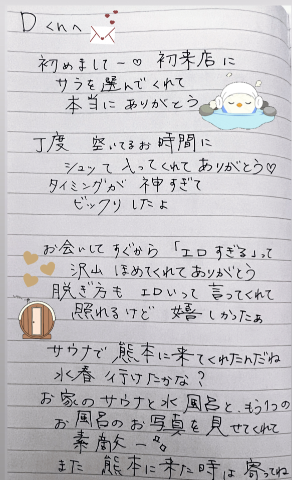 Dくんへ
初めましてー♡ 初来店に
サラを選んでくれて
本当にありがとう
丁度 空いてるお時間に
シュッて入ってくれてありがとう♡
タイミングが神すぎて
ビックリしたよ
お会いしてすぐから「エロすぎる」って
沢山ほめてくれてありがとう
脱ぎ方もエロいって言ってくれて
照れるけど嬉しかったぁ
サウナで熊本に来てくれたんだね
水春行けたかな?
お家のサウナと水風呂と、もう1つの
お風呂のお写真を見せてくれて
素敵〜
また熊本に来た時は寄ってね